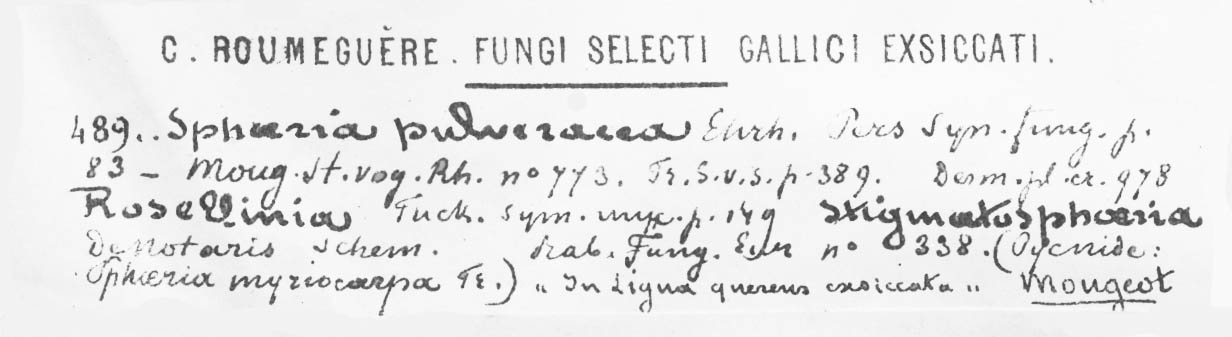 C. ROUMEGUÈRE. FUNGI SELECTI GALLICI EXSICCATI.
489.. Sphæria pulveracea Ehrh. Pers Syn. fung. p.
83 — Moug. St. vog. Rh. nº 773. Fr. S. v. s. p. 389. Desm. pl. cr. 978
Rosellinia Fuck. Sym. myc. p. 149 Stigmatosphæria
DeNotaris Schem. Rab. Fung. Eur nº 338. (Pycnide:
Sphæria myriocarpa Fr.) „ In Ligna quercus exsiccata „ Mougeot